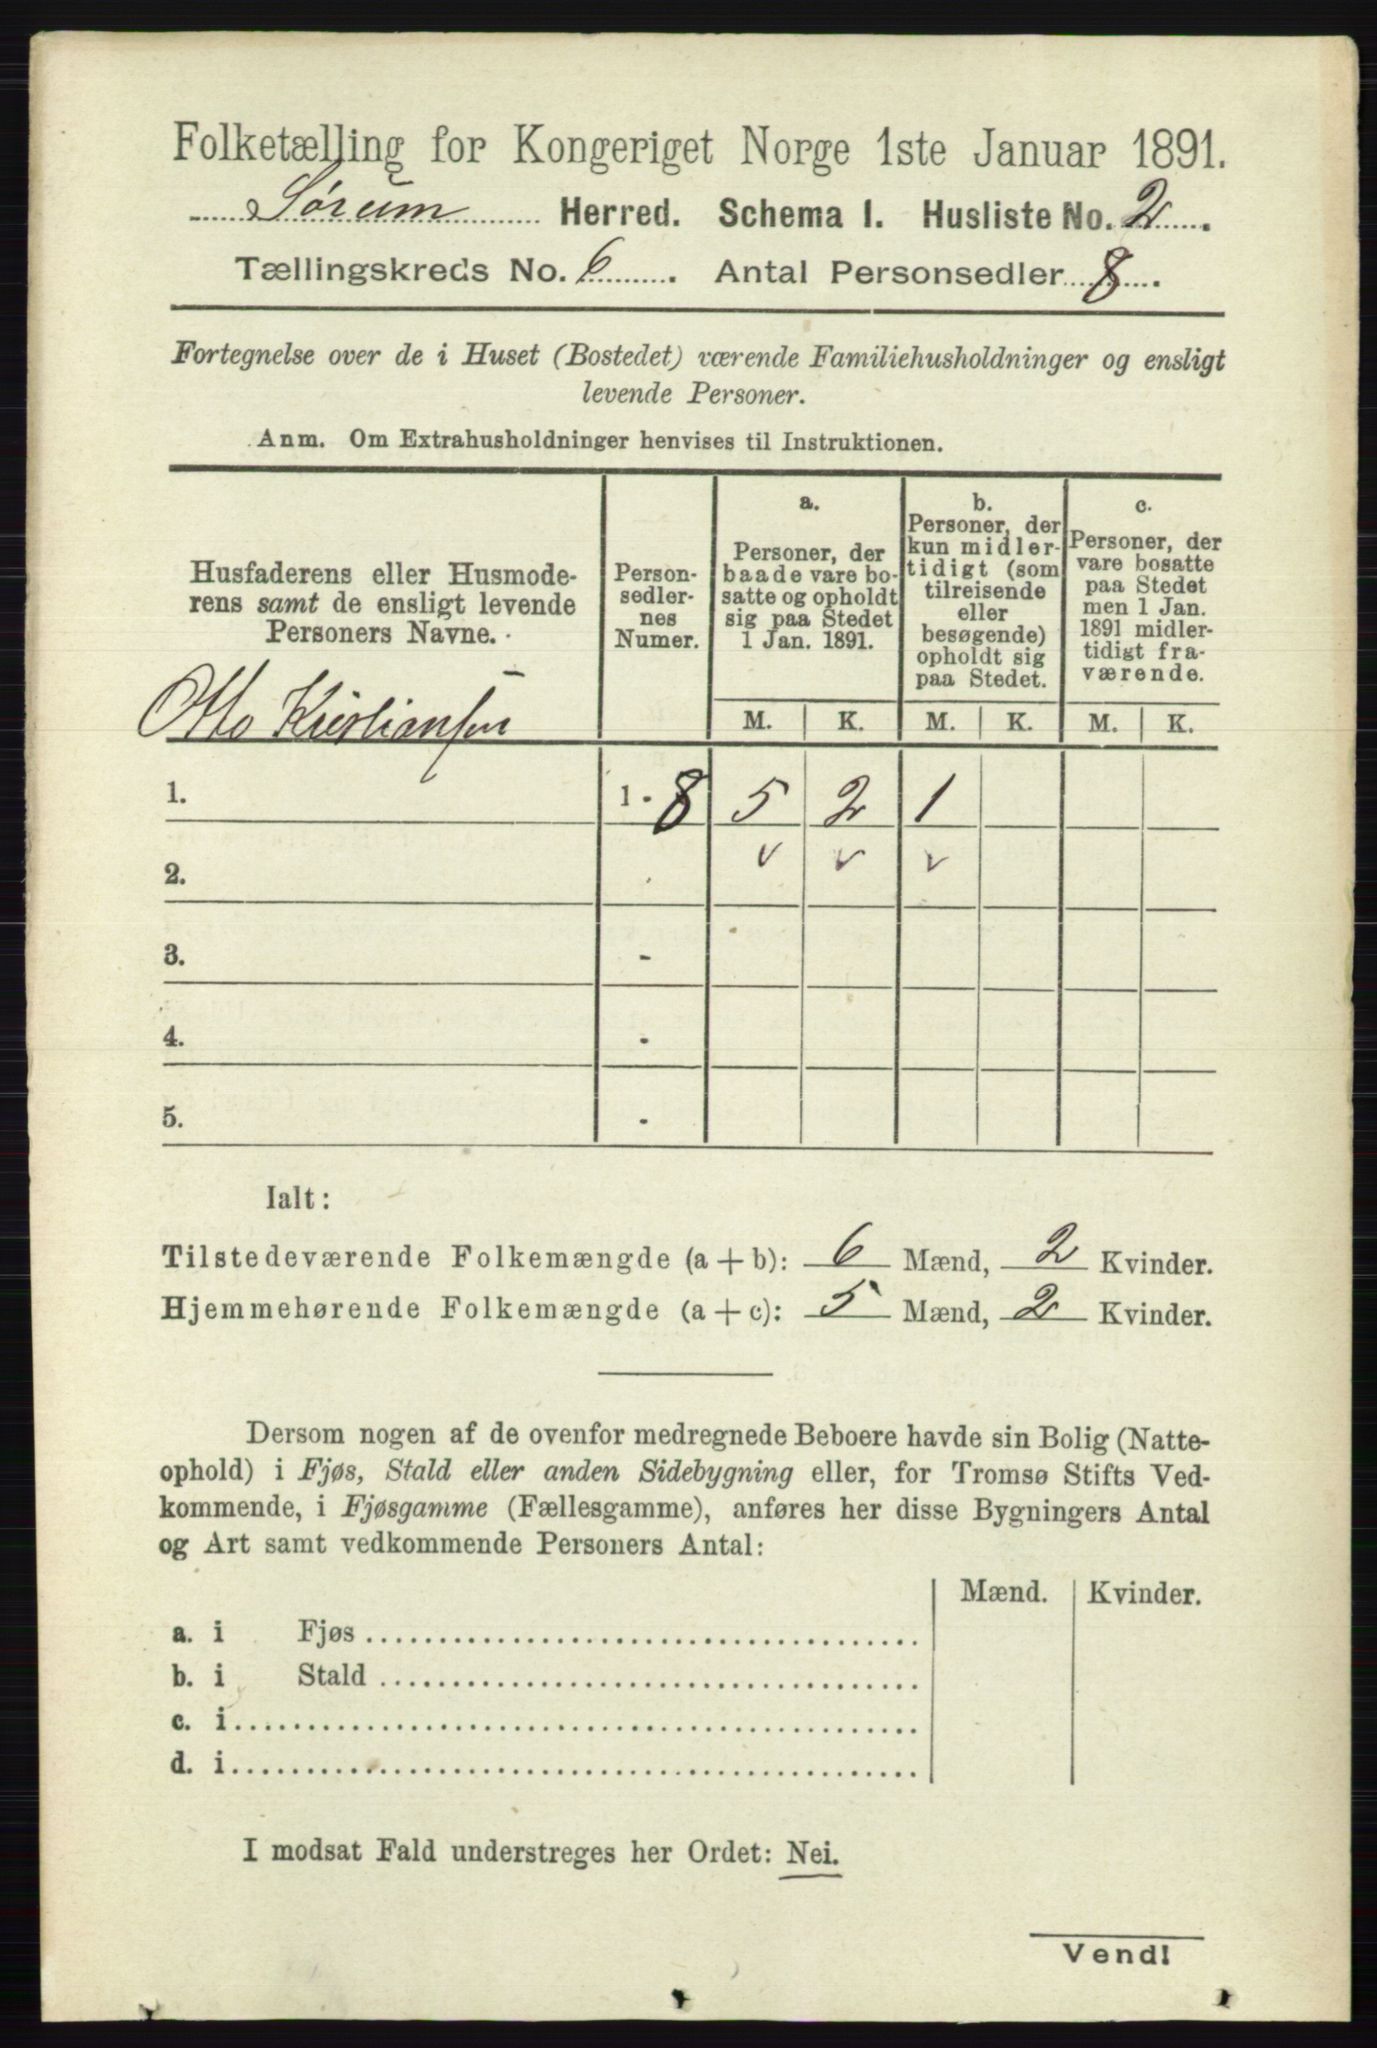 Folketælling for Kongeriget Norge 1ste Januar 1891.
Sørum Herred. Schema I. Husliste No. 2.
Tællingskreds No. 6. Antal Personsedler 8.
Fortegnelse over de i Huset (Bostedet) værende Familiehusholdninger og ensligt
levende Personer.
Anm. Om Extrahusholdninger henvises til Instruktionen.
Husfaderens eller Husmode-
rens samt de ensligt levende
Personers Navne.
Person-
sedler-
nes
Numer.
a.
Personer, der
baade vare bo-
satte og opholdt
sig paa Stedet
1 Jan. 1891.
b.
Personer, der
kun midler-
tidigt (som
tilreisende
eller
besøgende)
opholdt sig
paa Stedet.
c.
Personer, der
vare bosatte
paa Stedet
men 1 Jan.
1891 midler-
tidigt fra-
værende.
M. K. M. K. M. K.
Otto Kristiansen
1. 1 - 8 5 2 1
2. v v v
3. -
4. -
5. -
Ialt:
Tilstedeværende Folkemængde (a + b): 6 Mænd, 2 Kvinder.
Hjemmehørende Folkemængde (a + c): 5 Mænd, 2 Kvinder.
Dersom nogen af de ovenfor medregnede Beboere havde sin Bolig (Natte-
ophold) i Fjøs, Stald eller anden Sidebygning eller, for Tromsø Stifts Ved-
kommende, i Fjøsgamme (Fællesgamme), anføres her disse Bygningers Antal
og Art samt vedkommende Personers Antal:
Mænd. Kvinder.
a. i Fjøs
b. i Stald
c. i
d. i
I modsat Fald understreges her Ordet: Nei.
Vend!